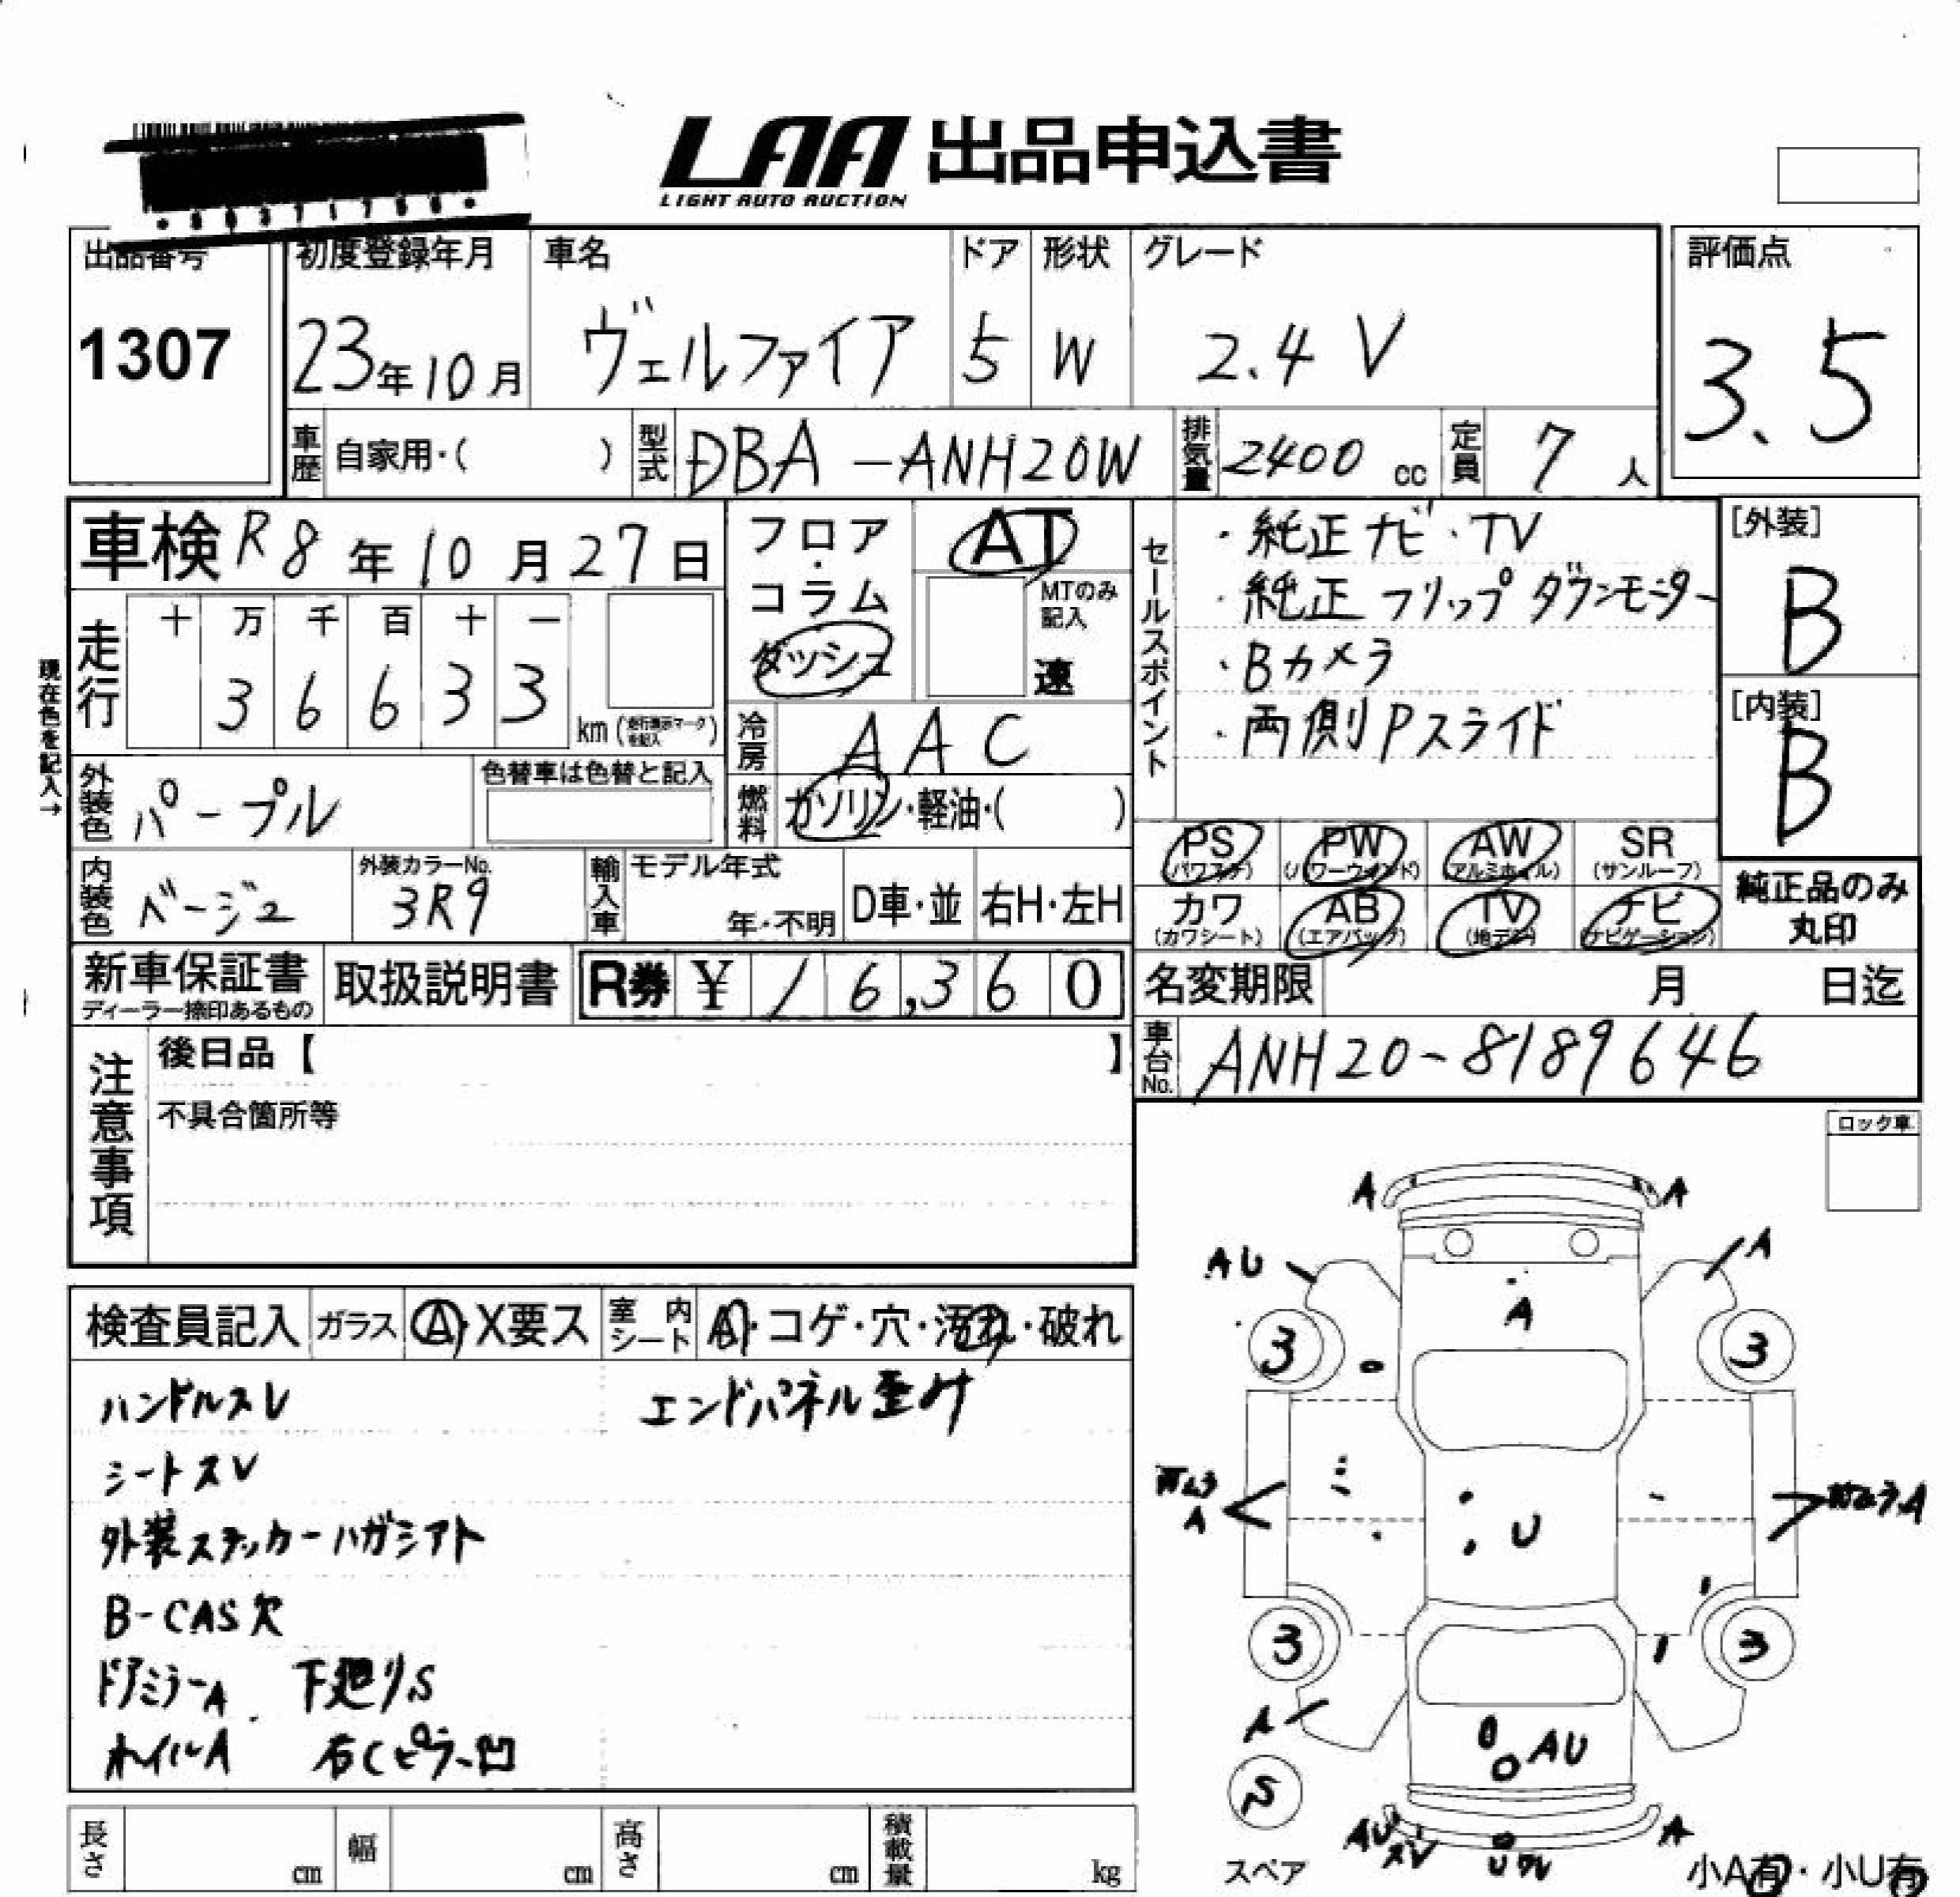 LAA 出品申込書
LIGHT AUTO AUCTION
出品番号
1307
初度登録年月
23年10月
車名
ヴェルファイア
ドア
5
形状
W
グレード
2.4 V
評価点
3.5
車歴 自家用・( )
型式 DBA-ANH20W
排気量 2400 cc
定員 7 人
車検 R8年10月27日
現在色を記入→
走行
十 万 千 百 十 一
3 6 6 3 3
km
フロア・コラム
ダッシュ
AT
MTのみ記入
速
冷房 AAC
燃料 ガソリン・軽油・( )
外装色 パープル
色替車は色替と記入
内装色 ベージュ
外装カラーNo.
3R9
輸入車
モデル年式
年・不明
D車・並
右H・左H
セールスポイント
・純正ナビ・TV
・純正フリップダウンモニター
・Bカメラ
・両側Pスライド
[外装]
B
[内装]
B
PS
(パワステ)
PW
(パワーウインド)
AW
(アルミホイル)
SR
(サンルーフ)
カワ
(カワシート)
AB
(エアバッグ)
TV
(地デジ)
ナビ
(ナビゲーション)
純正品のみ
丸印
新車保証書
ディーラー捺印あるもの
取扱説明書
R券 ¥16,360
名変期限 月 日迄
車台No. ANH20-8189646
注意事項
後日品【 】
不具合箇所等
ロック車
検査員記入 ガラス A・X要ス
室内シート A・コゲ・穴・汚れ・破れ
ハンドルスレ
エンドパネル歪み
シートスレ
外装ステッカーハガシアト
B-CAS欠
ドアミラーA 下廻りS
ホイルA 右Cピラー凹
A A
AU A
A
3 3
A
U
3 3
A
AU
S
スペア
AU
A
小A有・小U有
長さ cm
幅 cm
高さ cm
積載量 kg